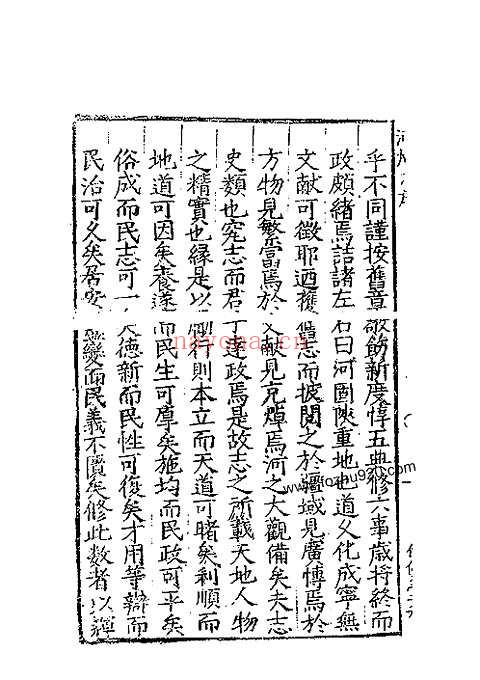 乎不同謹按舊章敬飭新度惇五典修六事歲將終而
政頗緒焉詰諸左右曰河固陝重地也道久化成寧無
文献可徵耶迺獲舊志而披閱之於疆域見廣博焉於
方物見繁富焉於文献見充燁焉河之大觀備矣夫志
史類也究志而君子達政焉是故志之所載天地人物
之精實也緣是以制行則本立而天道可睹矣利順而
地道可因矣養遂而民生可厚矣施均而民政可平矣
俗成而民志可一矣德新而民性可復矣才用等辯而
民治可久矣居安 變而民義不匱矣修此數者以
nayona.cn
www.fozhu920.com